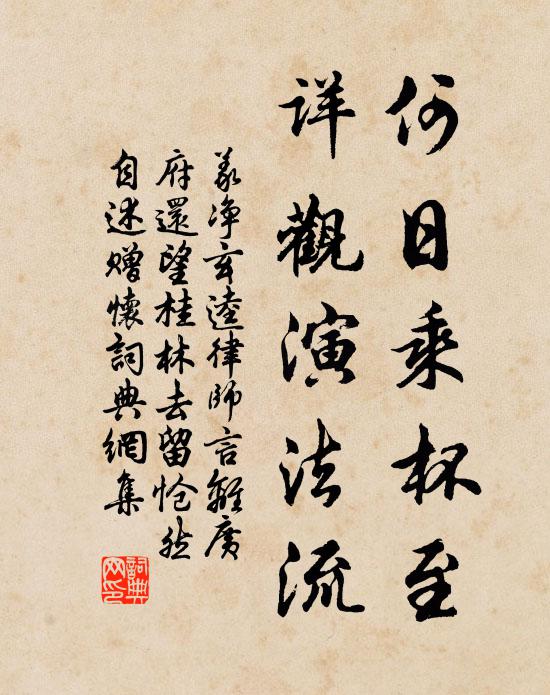 何日乘杯至
详觀演法流
义净玄逵律師言離廣
府還望桂林去留怆然
自述贈懷詞典網集
詞典網印